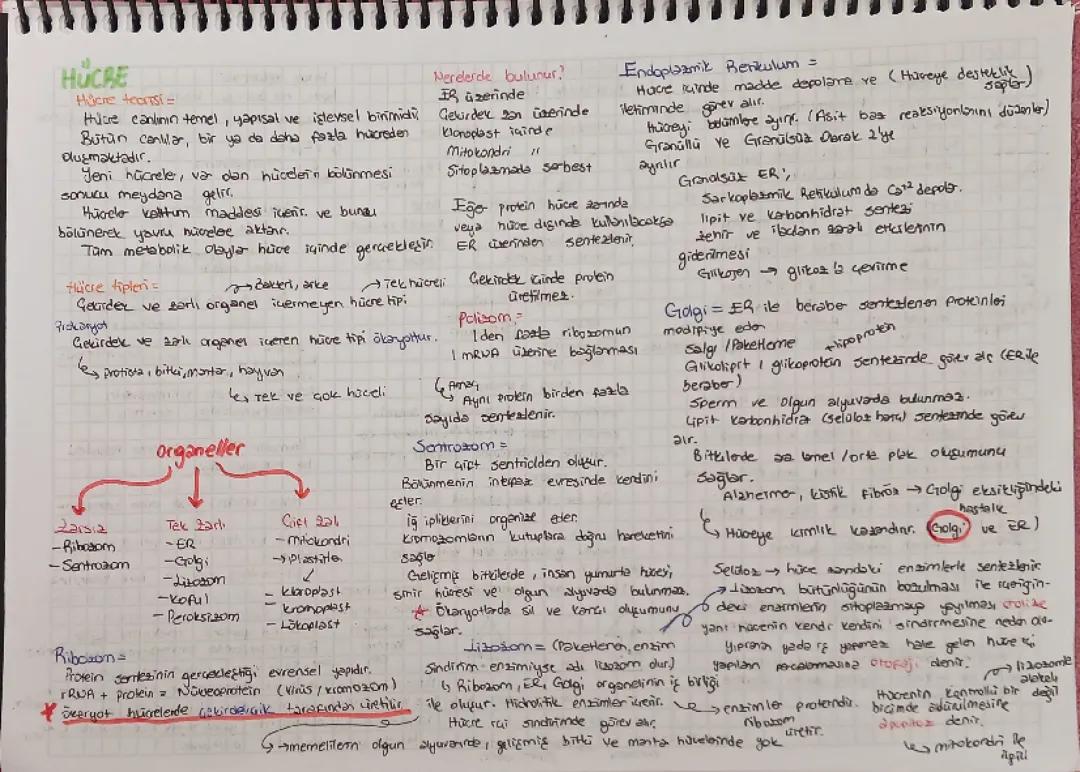 HÜCRE
Hücre teorisi =
Hücre canlının temel, yapısal ve işlevsel birimidir
Bütün canlılar, bir ya da daha fazla hücreden
oluşmaktadır.
Yeni hücreler, var olan hücrelerin bölünmesi
sonucu meydana gelir.
Hücreler kalıtım maddesi içerir. ve bunu
bölünerek yavru hücrelere aktarır.
Tüm metabolik olaylar hücre içinde gerçekleşir.
Hücre tipleri =
→ Bakteri, arke → Tek hücreli
Çekirdek ve zarlı organel içermeyen hücre tipi
Prokaryot
Çekirdek ve zarlı organel içeren hücre tipi ökaryottur.
↳ protista, bitki, mantar, hayvan
↳ Tek ve çok hücreli
organeller
Zarsız
- Ribozom
- Sentrozom
Tek zarlı
- ER
- Golgi
- Lizozom
- Koful
- Peroksizom
Çift zarlı
- Mitokondri
→ Plastitler
- kloroplast
- kromoplast
- Lökoplast
Ribozom =
Protein sentezinin gerçekleştiği evrensel yapıdır.
rRNA + protein = Nükleoprotein (virüs / kromozom)
* ökaryot hücrelerde çekirdekçik tarafından üretilir
↳ memelilerin olgun alyuvarında, gelişmiş bitki ve mantar hücrelerinde yok
Nerelerde bulunur?
ER üzerinde
Çekirdek zarı üzerinde
kloroplast içinde
Mitokondri "
Sitoplazmada serbest
Eğer protein hücre zarında
veya hücre dışında kullanılacaksa
ER üzerinden sentezlenir.
Çekirdek içinde protein
üretilmez.
Polizom =
1 den fazla ribozomun
1 mRNA üzerine bağlanması
↳ Amaç
Aynı protein birden fazla
sayıda sentezlenir.
Sentrozom =
Bir çift sentriolden oluşur.
Bölünmenin interfaz evresinde kendini
eşler.
İğ ipliklerini organize eder.
Kromozomların kutuplara doğru hareketini
sağlar
Gelişmiş bitkilerde, insan yumurta hücresi,
sinir hücresi ve olgun alyuvarda bulunmaz.
* Ökaryotlarda sil ve kamçı oluşumunu
sağlar.
Lizozom = (Paketlenen, enzim
sindirim enzimiyse adı lizozom olur)
↳ Ribozom, ER, Golgi organelinin iş birliği
ile oluşur. Hidrolitik enzimler içerir. → enzimler proteindir.
ribozom
üretir.
Hücre içi sindirimde görev alır.
Endoplazmik Retikulum =
Hücre içinde madde depolama ve (Hücreye desteklik
sağlar)
iletiminde görev alır.
Hücreyi bölümlere ayırır. (Asit baz reaksiyonlarını düzenler)
Granüllü ve Granülsüz olarak 2'ye
ayrılır
Granülsüz ER;
Sarkoplazmik Retikulumda Ca+2 depolar.
lipit ve karbonhidrat sentezi
zehir ve ilaçların zararlı etkilerinin
giderilmesi
Glikojen → glikoz'a çevirme
Golgi = ER ile beraber sentezlenen proteinleri
modifiye eder
Salgı / Paketleme → lipoprotein
Glikolipit / glikoprotein sentezinde görev alır (ER ile
beraber)
Sperm ve olgun alyuvarda bulunmaz.
Lipit karbonhidrat (selüloz hariç) sentezinde görev
alır.
Bitkilerde ara lamel / orta plak oluşumunu
sağlar.
Alzheimer, kistik fibröz → Golgi eksikliğindeki
hastalık
↳ Hücreye kimlik kazandırır. (Golgi ve ER)
Selüloz → hücre zarındaki enzimlerle sentezlenir
→ Lizozom bütünlüğünün bozulması ile içerisin-
deki enzimlerin sitoplazmaya yayılması otoliz
yani hücrenin kendi kendini sindirmesine neden olur
Yıpranan yada iş yapamaz hale gelen hücre içi
yapıların parçalanmasına otofaji denir.
→ lizozomla
alakalı
değil
Hücrenin kontrollü bir
biçimde öldürülmesine
apoptoz denir.
↳ mitokondri ile
ilgili